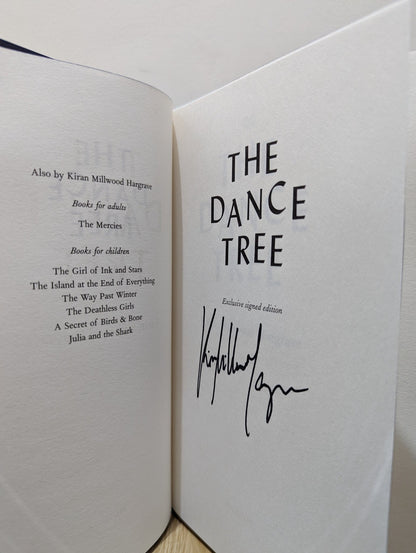 Also by Kiran Millwood Hargrave
Books for adults
The Mercies
Books for children
The Girl of Ink and Stars
The Island at the End of Everything
The Way Past Winter
The Deathless Girls
A Secret of Birds & Bone
Julia and the Shark
THE
DANCE
TREE
Exclusive signed edition